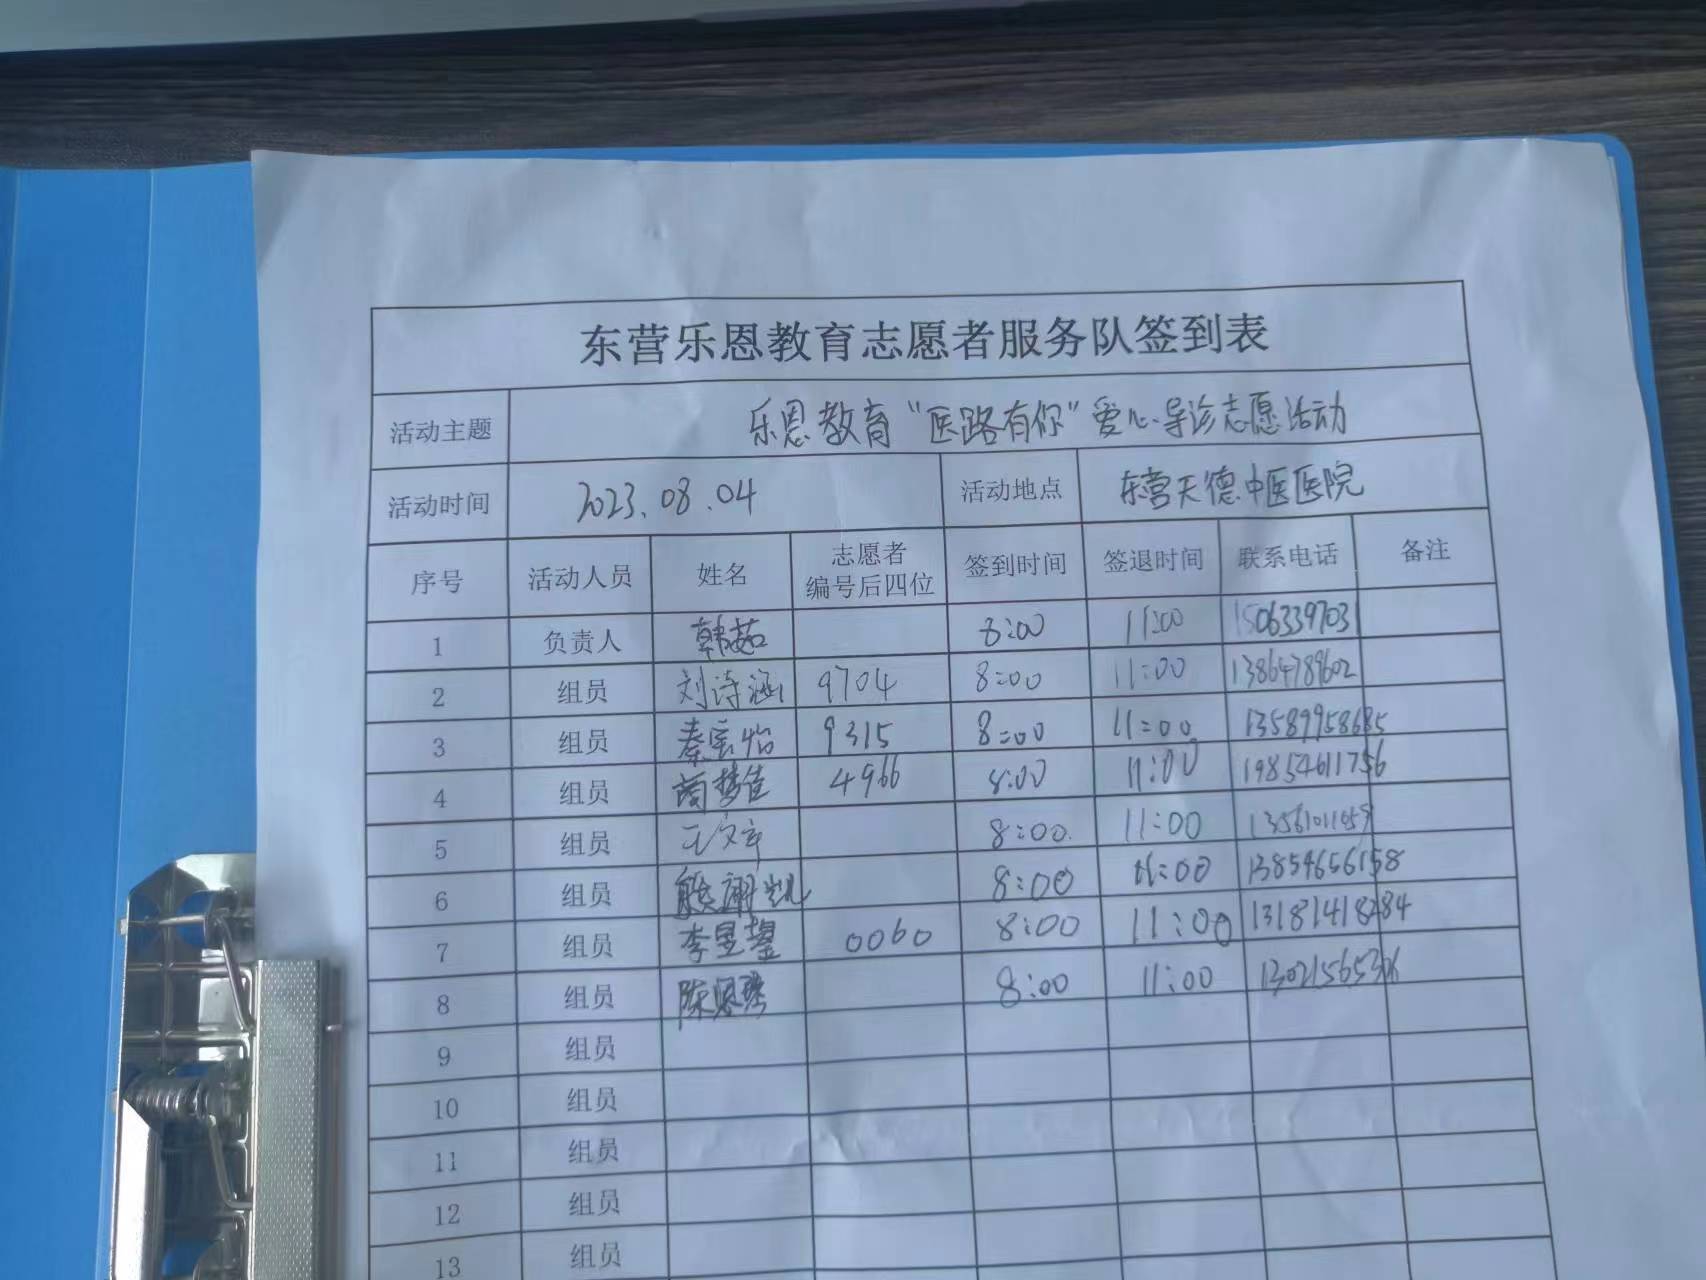 东营乐恩教育志愿者服务队签到表
活动主题 乐恩教育“医路有你”爱心导诊志愿活动
活动时间 2023.08.04 活动地点 东营天德中医医院
序号 活动人员 姓名 志愿者编号后四位 签到时间 签退时间 联系电话 备注
1 负责人 韩茹 8:00 11:00 1506339703
2 组员 刘诗涵 9704 8:00 11:00 13864789602
3 组员 秦宝怡 9315 8:00 11:00 13589958685
4 组员 梦佳 4966 8:00 11:00 19854611756
5 组员 8:00 11:00
6 组员 熊翊凯 8:00 11:00 13854656158
7 组员 李昱鋆 0060 8:00 11:00 13181418284
8 组员 陈恩琇 8:00 11:00
9 组员
10 组员
11 组员
12 组员
13 组员